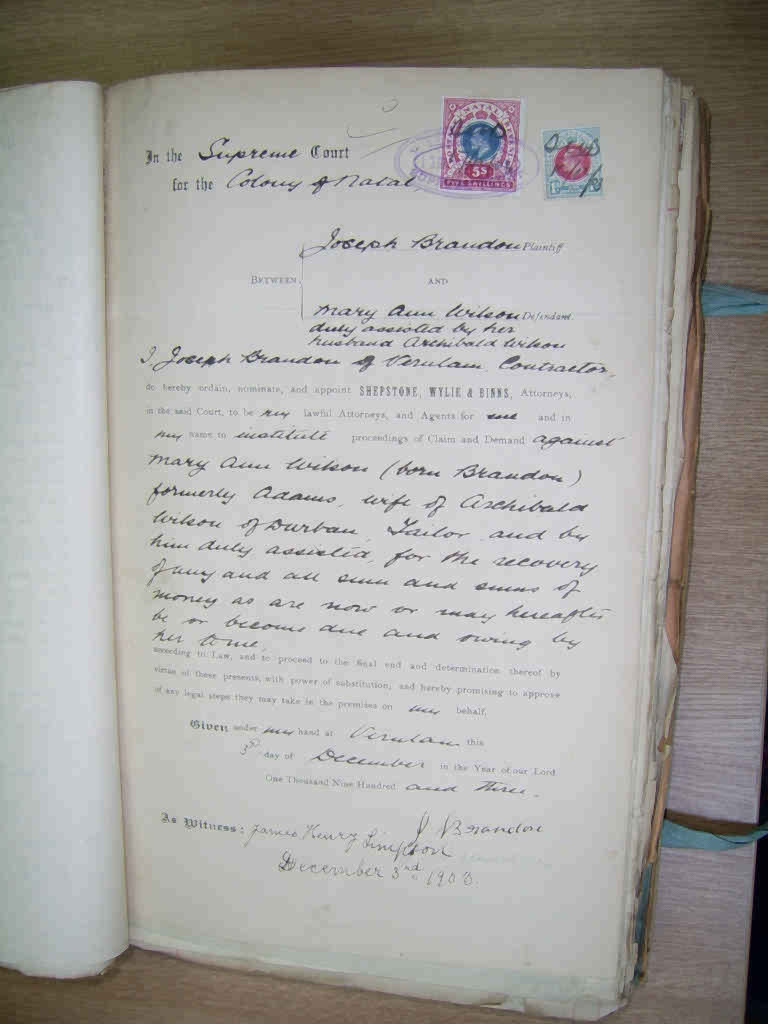 NATAL REVENUE
5S
FIVE SHILLINGS
In the Supreme Court
for the Colony of Natal
Joseph Brandon Plaintiff
BETWEEN AND
Mary Ann Wilson Defendant
duly assisted by her
husband Archibald Wilson
I, Joseph Brandon of Verulam, Contractor,
do hereby ordain, nominate, and appoint SHEPSTONE, WYLIE & BINNS, Attorneys,
in the said Court, to be my lawful Attorneys, and Agents for me and in
my name to institute proceedings of Claim and Demand against
Mary Ann Wilson (born Brandon)
formerly Adams, wife of Archibald
Wilson of Durban, Tailor, and by
him duly assisted, for the recovery
of any and all sum and sums of
money as are now or may hereafter
be or become due and owing by
her to me,
according to Law, and to proceed to the final end and determination thereof by
virtue of these presents, with power of substitution, and hereby promising to approve
of any legal steps they may take in the premises on my behalf.
Given under my hand at Verulam this
3rd day of December in the Year of our Lord
One Thousand Nine Hundred and three.
J Brandon
As Witness: James Henry Simpson
December 3rd 1903.